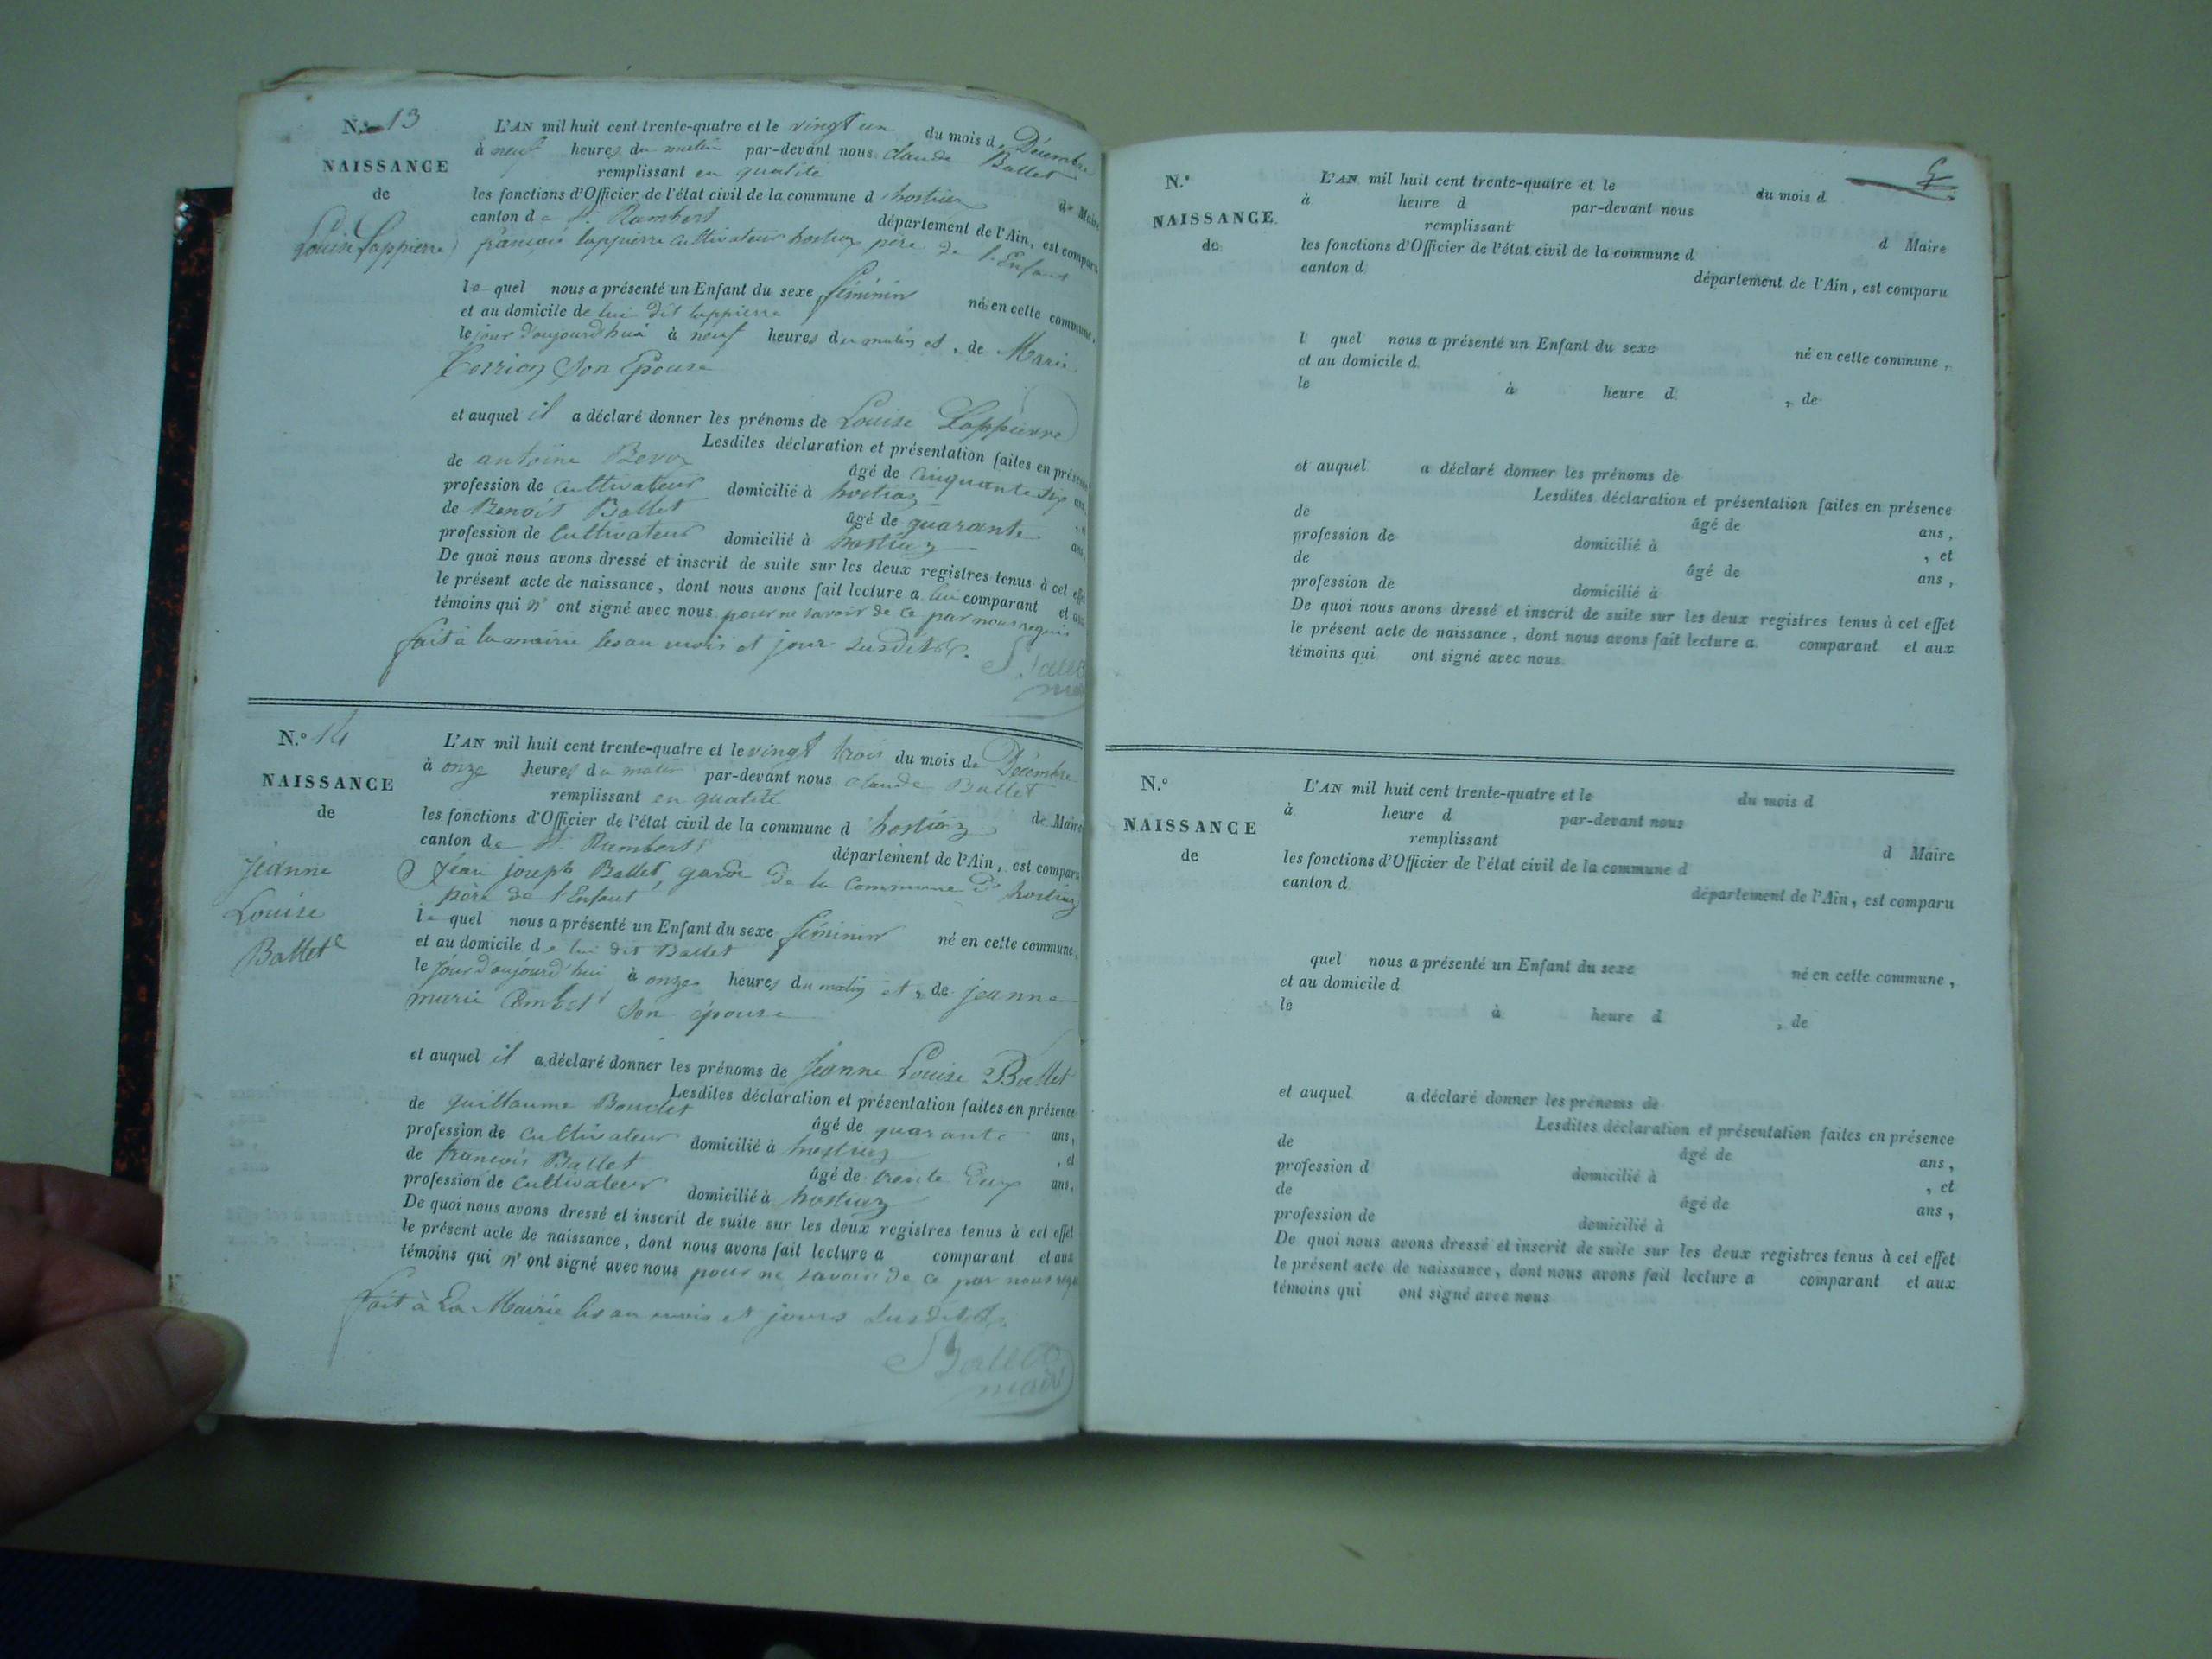 N.º 13
NAISSANCE
de
Louise Lappierre
L'AN mil huit cent trente-quatre et le vingt un du mois de Décembre
à neuf heures du matin par-devant nous claude Ballet
remplissant en qualité de Maire
les fonctions d'Officier de l'état civil de la commune d hostiaz
canton de St. Rambert département de l'Ain, est comparu
francois lappierre cultivateur hostiaz père de l'Enfant
le quel nous a présenté un Enfant du sexe féminin né en cette commune,
et au domicile de lui dit lappierre
le jour d'aujourd'hui à neuf heures du matin et, de Marie
son Epouse
et auquel il a déclaré donner les prénoms de Louise Lappierre
Lesdites déclaration et présentation faites en présence
de antoine âgé de cinquante six ans,
profession de cultivateur domicilié à hostiaz
de Benoit Ballet âgé de quarante ans
profession de Cultivateur domicilié à hostiaz
De quoi nous avons dressé et inscrit de suite sur les deux registres tenus à cet effet
le présent acte de naissance, dont nous avons fait lecture a lui comparant et aux
témoins qui n' ont signé avec nous pour ne savoir de ce par nous requis
fait à la mairie les an mois et jour susdits
Ballet
maire
N.º 14
NAISSANCE
de
Jeanne
Louise
Ballet
L'AN mil huit cent trente-quatre et le vingt trois du mois de Décembre
à onze heures du matin par-devant nous claude Ballet
remplissant en qualité de Maire
les fonctions d'Officier de l'état civil de la commune d hostiaz
canton de St. Rambert département de l'Ain, est comparu
Jean joseph Ballet garde de la Commune d' hostiaz
père de l'Enfant
le quel nous a présenté un Enfant du sexe féminin né en cette commune,
et au domicile de lui dit Ballet
le jour d'aujourd'hui à onze heures du matin et, de jeanne
marie son épouse
et auquel il a déclaré donner les prénoms de Jeanne Louise Ballet
Lesdites déclaration et présentation faites en présence
de guillaume âgé de quarante ans,
profession de cultivateur domicilié à hostiaz , et
de francois Ballet âgé de trente ans,
profession de cultivateur domicilié à hostiaz
De quoi nous avons dressé et inscrit de suite sur les deux registres tenus à cet effet
le présent acte de naissance, dont nous avons fait lecture a comparant et aux
témoins qui n' ont signé avec nous pour ne savoir de ce par nous requis
fait à La Mairie les an mois et jours susdits
Ballet
maire
N.º
NAISSANCE
de
L'AN mil huit cent trente-quatre et le du mois d
à heure d par-devant nous
remplissant d Maire
les fonctions d'Officier de l'état civil de la commune d
canton d département de l'Ain, est comparu
l quel nous a présenté un Enfant du sexe né en cette commune,
et au domicile d
le à heure d , de
et auquel a déclaré donner les prénoms de
Lesdites déclaration et présentation faites en présence
de âgé de ans,
profession de domicilié à , et
de âgé de ans,
profession de domicilié à
De quoi nous avons dressé et inscrit de suite sur les deux registres tenus à cet effet
le présent acte de naissance, dont nous avons fait lecture a comparant et aux
témoins qui ont signé avec nous
N.º
NAISSANCE
de
L'AN mil huit cent trente-quatre et le du mois d
à heure d par-devant nous
remplissant d Maire
les fonctions d'Officier de l'état civil de la commune d
canton d département de l'Ain, est comparu
quel nous a présenté un Enfant du sexe né en cette commune,
et au domicile d
le à heure d , de
et auquel a déclaré donner les prénoms de
Lesdites déclaration et présentation faites en présence
de âgé de ans,
profession d domicilié à , et
de âgé de ans,
profession de domicilié à
De quoi nous avons dressé et inscrit de suite sur les deux registres tenus à cet effet
le présent acte de naissance, dont nous avons fait lecture a comparant et aux
témoins qui ont signé avec nous